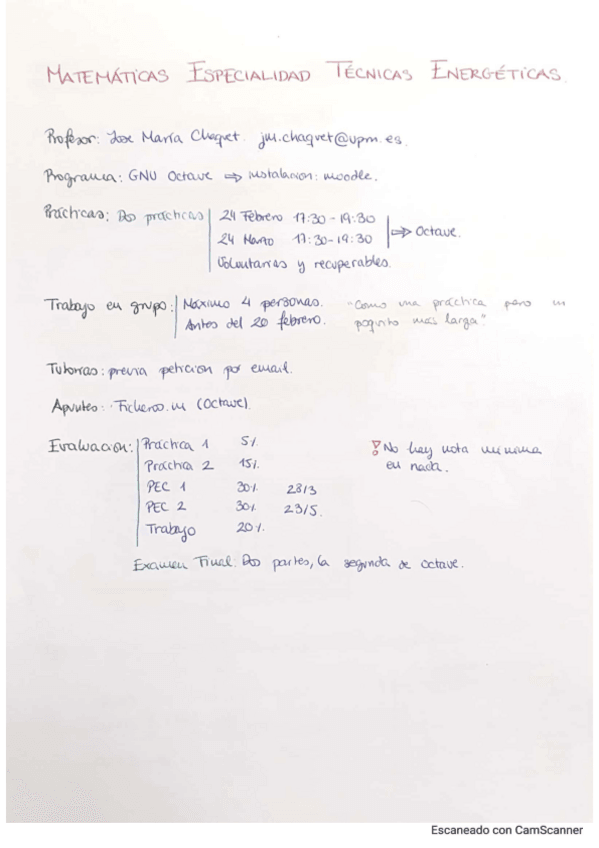 MATEMÁTICAS ESPECIALIDAD TÉCNICAS ENERGÉTICAS.
Profesor: Jose María Chaquet. jm.chaquet@upm.es.
Programa: GNU Octave ⇒ instalacion: moodle.
Prácticas: Dos prácticas 24 Febrero 17:30-19:30
24 Marzo 17:30-19:30 ⇒ Octave.
Voluntarias y recuperables.
Trabajo en grupo: Máximo 4 personas. "Como una práctica pero un
Antes del 20 febrero. poquito más larga"
Tutorías: previa petición por email.
Apuntes: Ficheros .m (Octave).
Evaluación: Práctica 1 5% ! No hay nota mínima
Práctica 2 15% en nada.
PEC 1 30% 28/3
PEC 2 30% 23/5.
Trabajo 20%.
Examen Final: Dos partes, la segunda de octave.
Escaneado con CamScanner